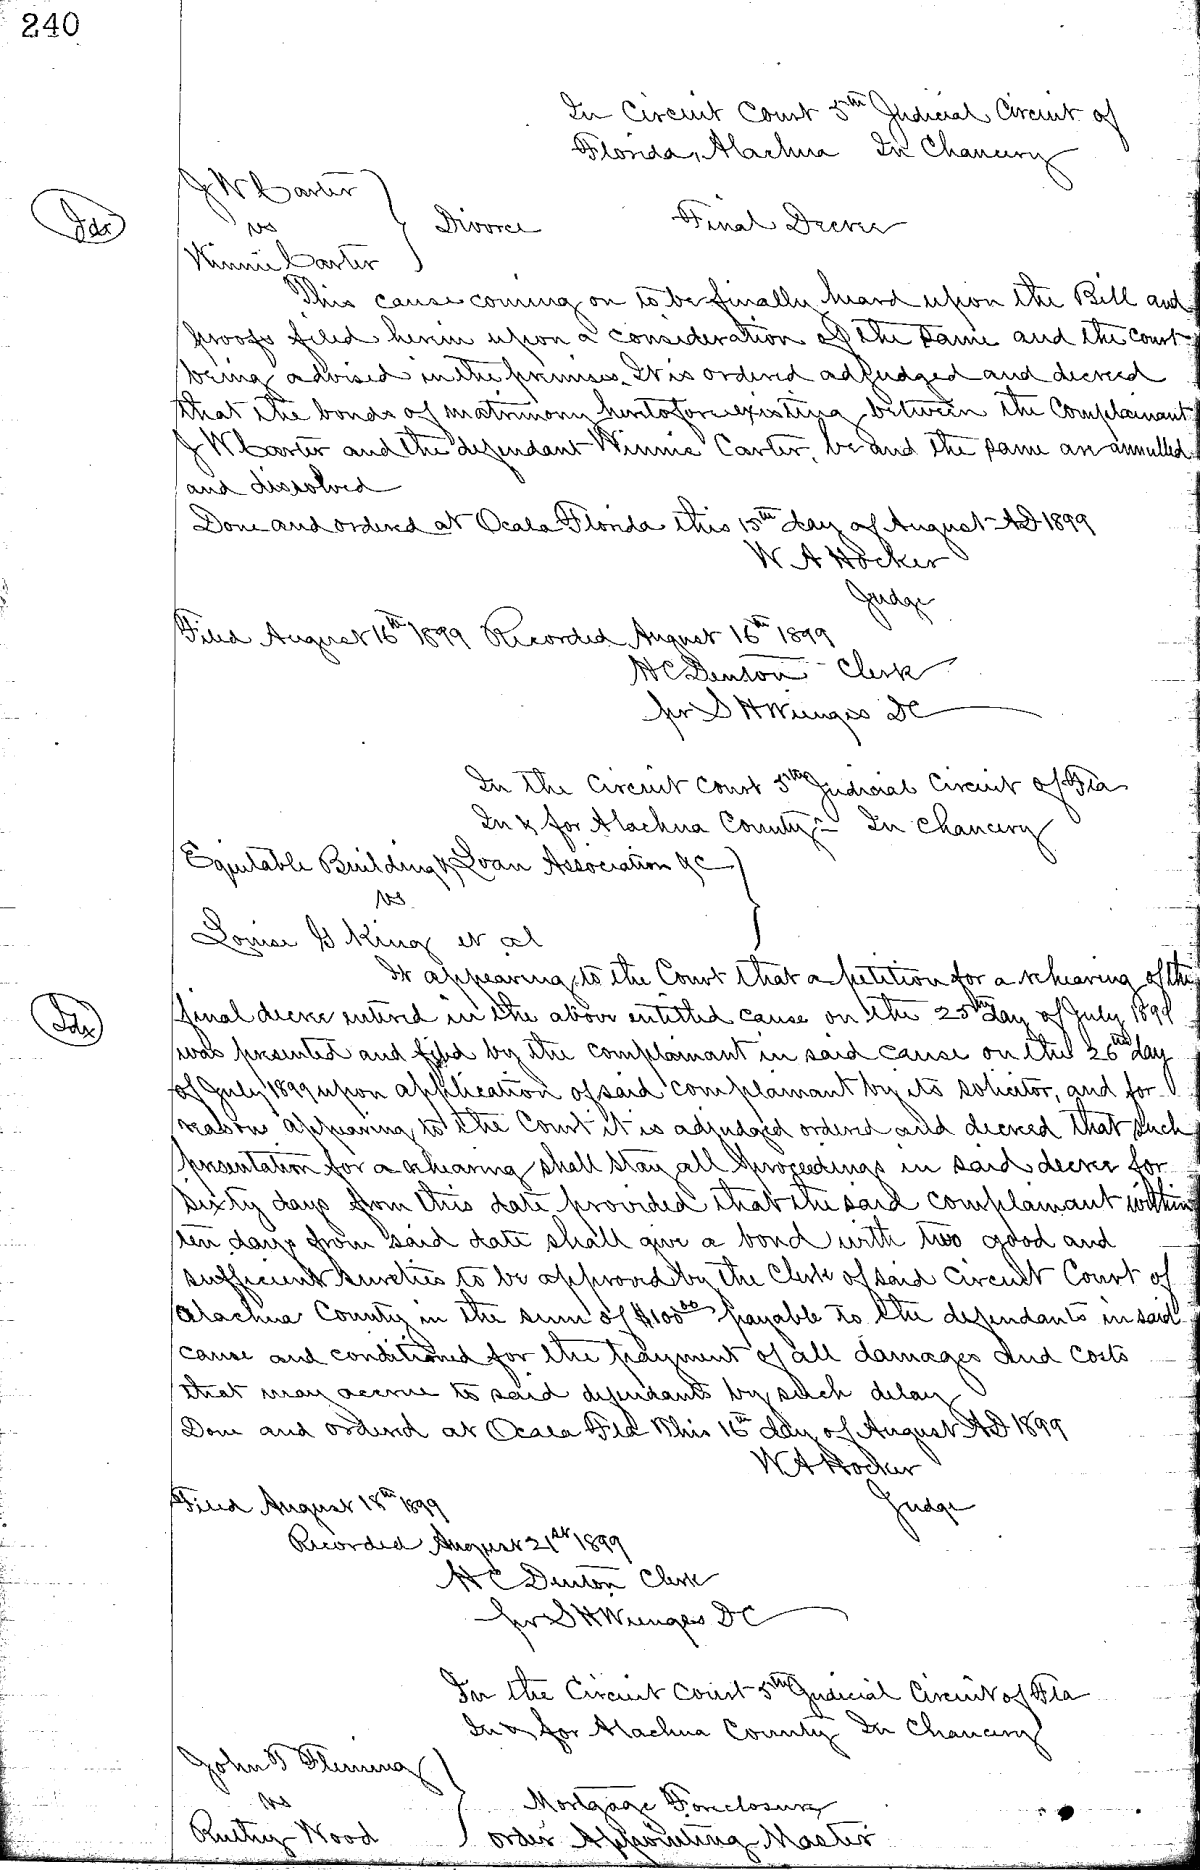 240
In Circuit Court 5th Judicial Circuit of
Florida, Alachua In Chancery
J W Carter
vs
Divorce Final Decree
Idx
Winnie Carter
This cause coming on to be finally heard upon the Bill and
proofs filed herin upon a consideration of the same and the court
being advised in the premises. It is ordered adjudged and decreed
that the bonds of matrimony heretofore existing between the Complainant
J W Carter and the defendant Winnie Carter, be and the same are annulled
and dissolved
Done and ordered at Ocala Florida this 15th day of August AD 1899
W A Hocker
Judge
Filed August 16th 1899 Recorded August 16th 1899
H C Denton Clerk
pr S H Wienges DC
In the Circuit Court 5th Judicial Circuit of Fla
In & for Alachua County - In Chancery
Equitable Building & Loan Association &C
vs
Louise G King et al
It appearing to the Court that a petition for a rehearing of the
Idx
final decree entered in the above entitled cause on the 25th day of July 1899
was presented and filed by the complainant in said cause on the 26th day
of July 1899 upon application of said complainant by its solicitor, and for
reasons appearing to the Court it is adjudged ordered and decreed that such
presentation for a rehearing shall stay all proceedings in said decree for
sixty days from this date provided that the said complainant within
ten days from said date shall give a bond with two good and
sufficient sureties to be approved by the Clerk of said Circuit Court of
Alachua County in the sum of $100.00 payable to the defendants in said
cause and conditioned for the payment of all damages and costs
that may accrue to said defendants by such delay
Done and ordered at Ocala Fla this 16th day of August AD 1899
W A Hocker
Judge
Filed August 18th 1899
Recorded August 21st 1899
H C Denton Clerk
pr S H Wienges DC
In the Circuit Court 5th Judicial Circuit of Fla
In & for Alachua County In Chancery
John F Fleming
vs
Mortgage Foreclosure
Ruthy Wood order Appointing Master